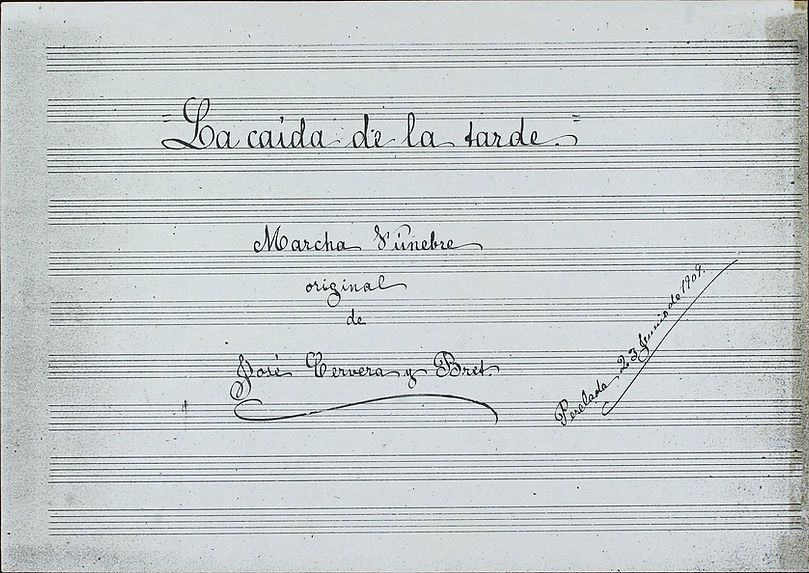 =La caida de la tarde.=
Marcha Fúnebre
original
de
José Cervera y Bret.
Perelada 23 Junio de 1909.